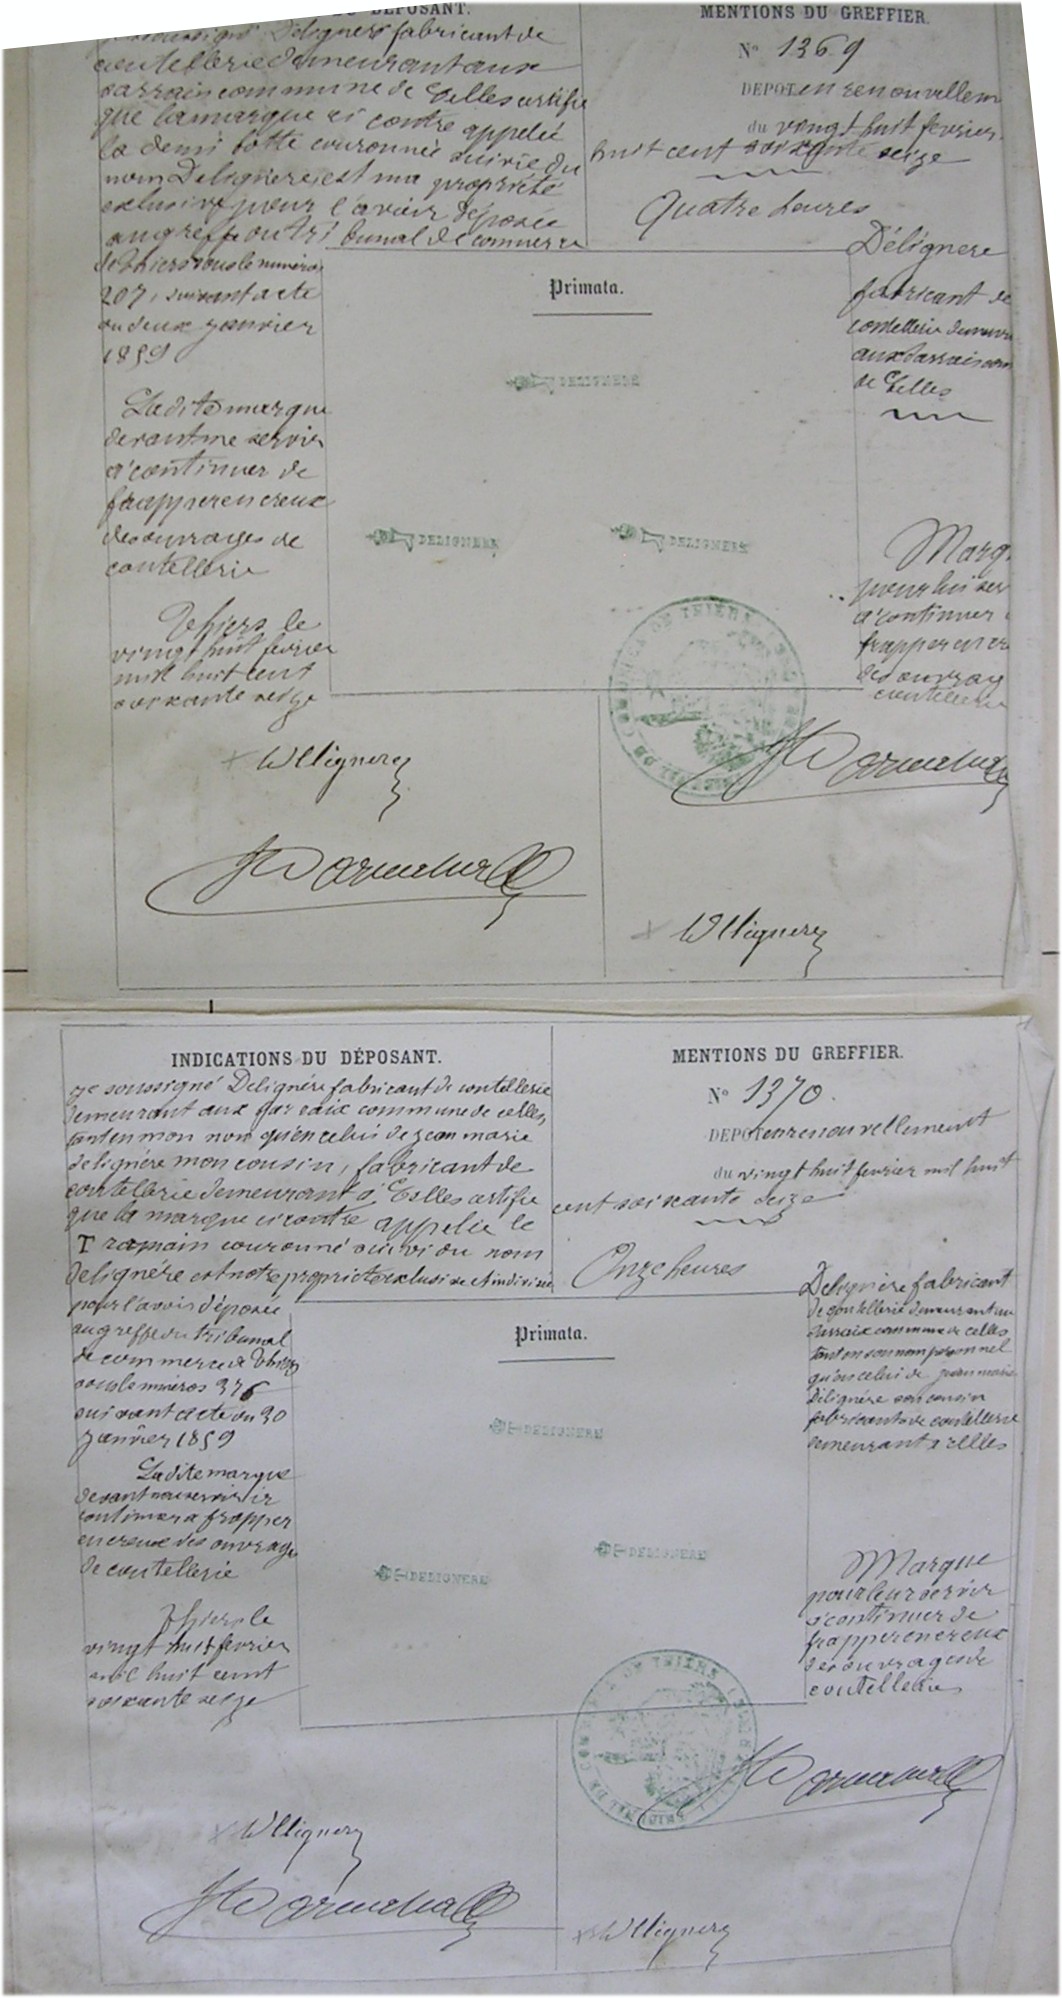 DU DÉPOSANT.
soussigné Delignère fabricant de
coutellerie demeurant aux
sarraix commune de Celles certifie
que la marque ci contre appelée
la demi botte couronnée suivie du
nom Delignere, est ma propriété
exclusive, pour l'avoir déposée
au greffe du tribunal de commerce
de Thiers sous le numéro
207, suivant acte
du deux janvier
1859
Ladite marque
devant me servir
a continuer de
frapper en creux
des ouvrages de
coutellerie
Thiers le
vingt huit fevrier
mil huit cent
soixante seize
MENTIONS DU GREFFIER.
N° 1369
DEPOT en renouvellem
du vingt huit fevrier
huit cent soixante seize
Quatre heures
Délignere
fabricant de
coutellerie demeura
aux Sarraix com
de Celles
Primata.
DELIGNERE
DELIGNERE
DELIGNERE
Marq
pour lui ser
a continuer
frapper en cr
des ouvrag
coutellerie
INDICATIONS DU DÉPOSANT.
Je soussigné Delignére fabricant de coutellerie
demeurant aux sarraix commune de celles,
tant en mon nom qu'en celui de jean marie
delignére mon cousin, fabricant de
coutellerie demeurant à Celles certifie
que la marque ci contre appelée le
T romain couronné suivi du nom
delignére est notre propriété exclusive et indivise
pour l'avoir déposée
au greffe du tribunal
de commerce de Thiers
sous le numéros 376
suivant acte du 30
Janvier 1859
Ladite marque
devant nous servir
continuer a frapper
en creux des ouvrages
de coutellerie
Thiers le
vingt huit fevrier
mil huit cent
soixante seize
MENTIONS DU GREFFIER.
N° 1370.
DEPOT en renouvellement
du vingt huit fevrier mil huit
cent soixante seize
Onze heures
Delignére fabricant
de coutellerie demeurant aux
sarraix commune de celles
tant en son nom personnel
qu'en celui de jean marie
Délignére son cousin
fabricant de coutellerie
demeurant a celles
Primata.
DELIGNERE
DELIGNERE
DELIGNERE
Marque
pour leur servir
a continuer de
frapper en creux
des ouvrages de
coutellerie